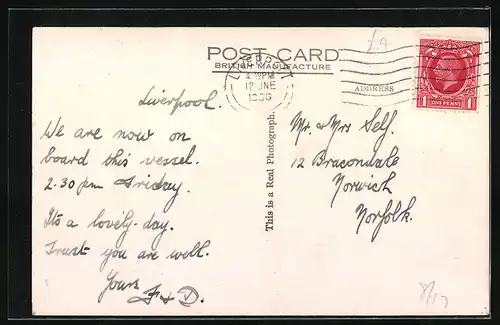 POST CARD
BRITISH MANUFACTURE
£9
LIVERPOOL
PM
12 JNE
1936
ADDRESS
ONE PENNY
1 1
This is a Real Photograph.
Liverpool.
We are now on
board this vessel.
2.30 pm Friday.
Its a lovely day.
Trust you are well.
Yours
F & D.
Mr. & Mrs Self.
12 Bracondale
Norwich
Norfolk.